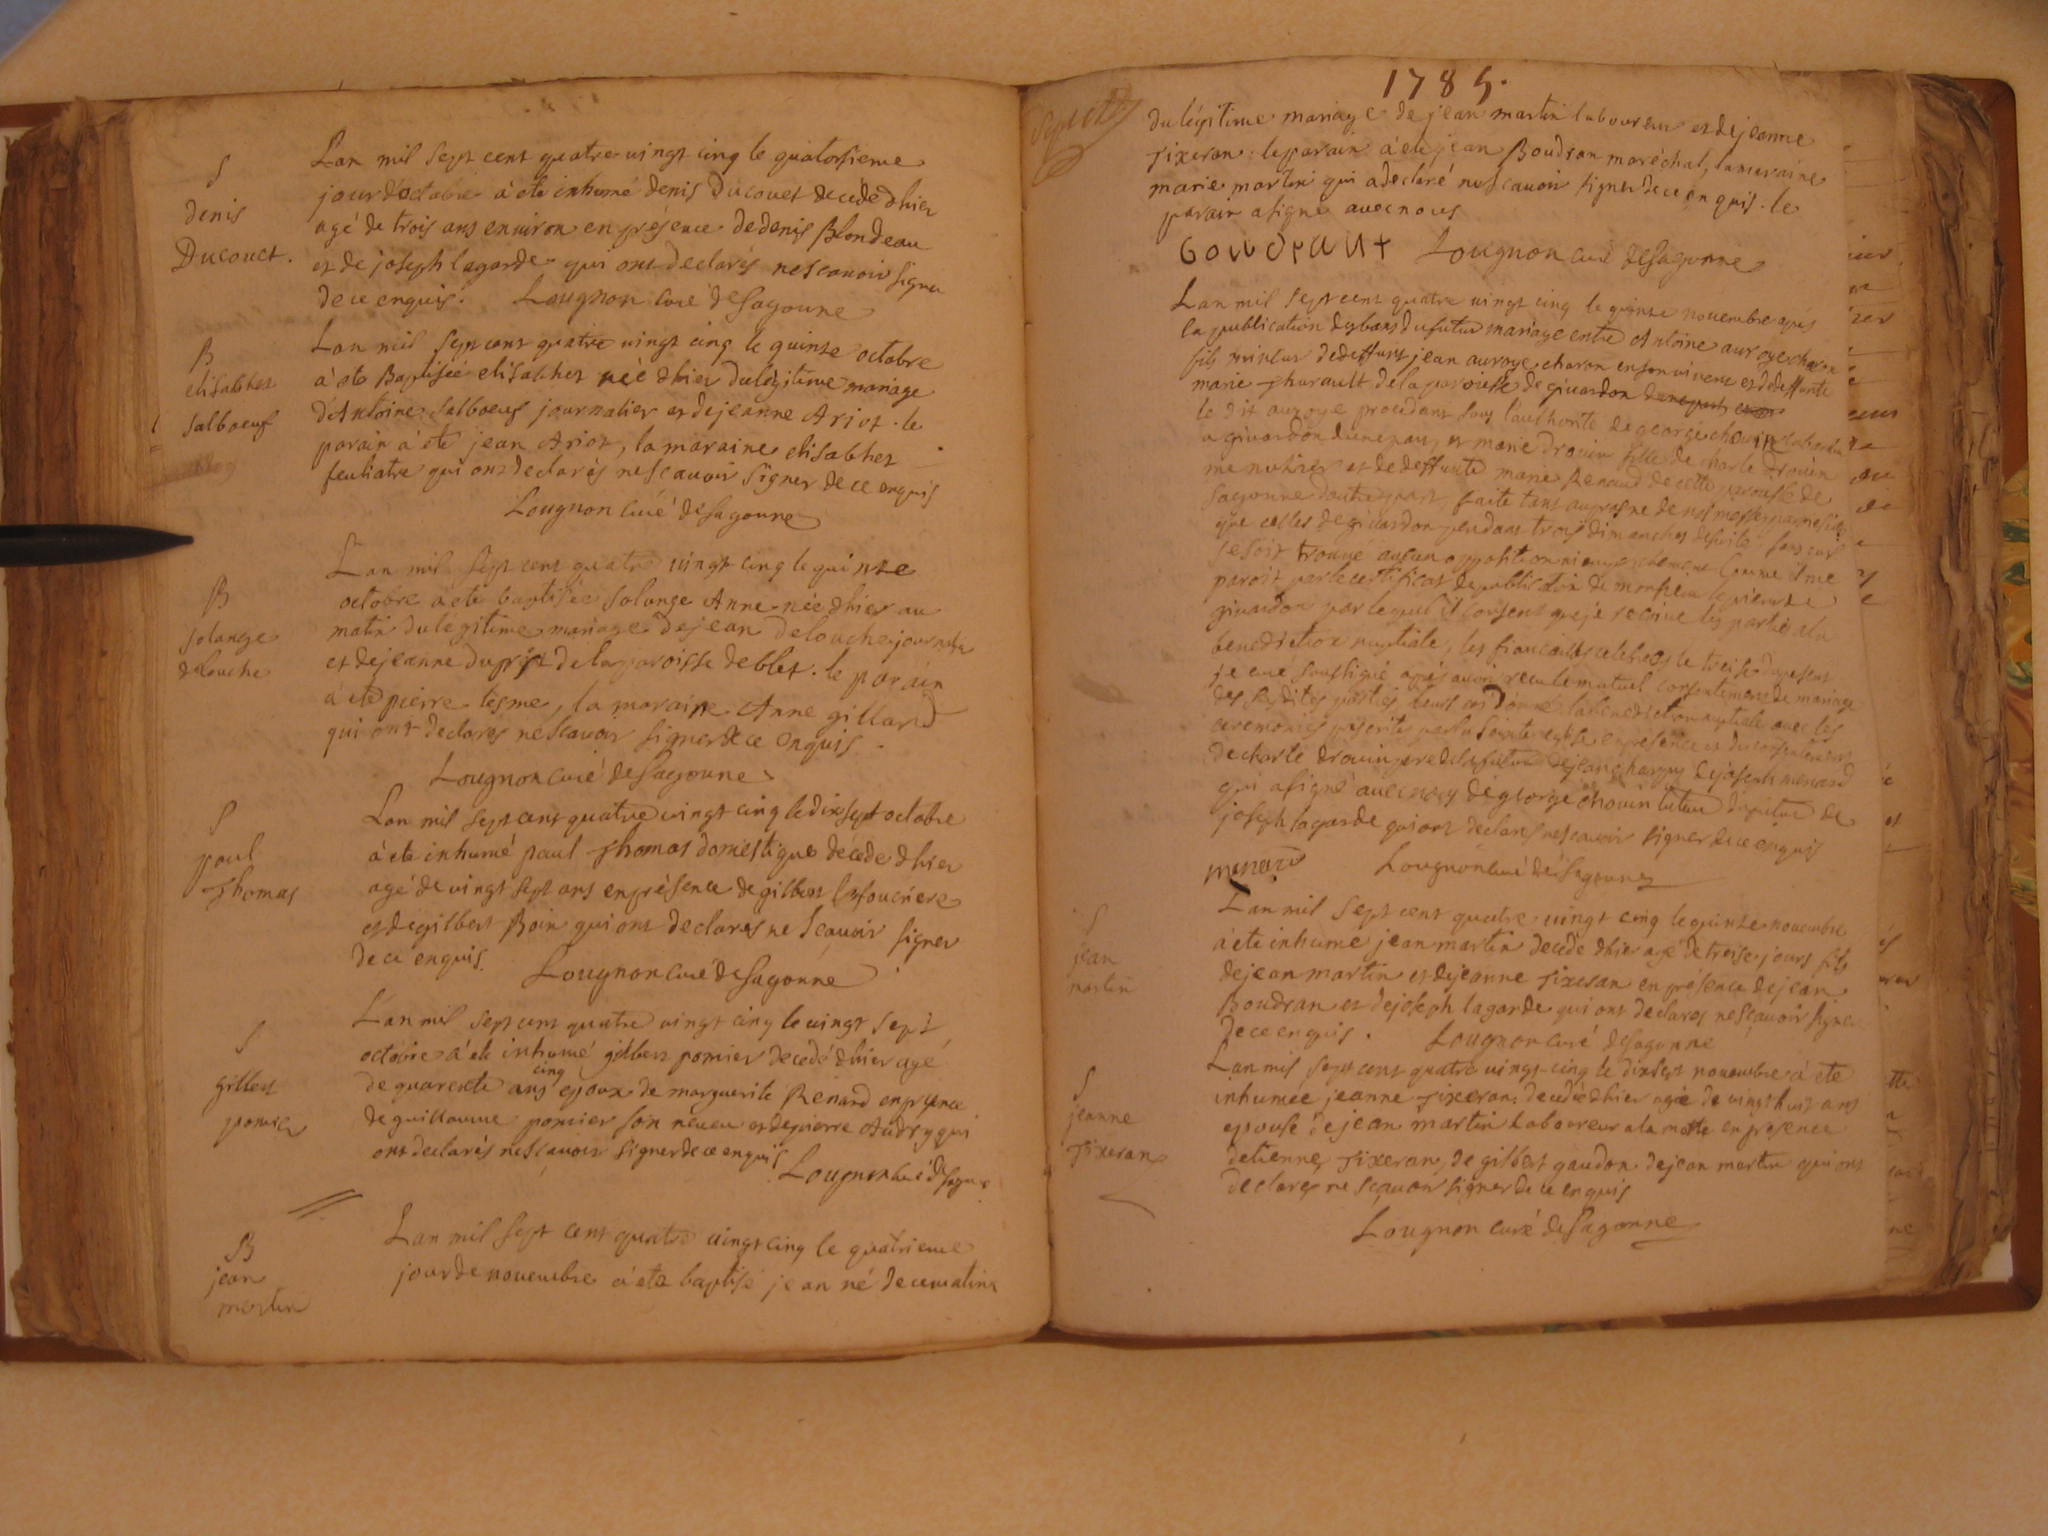 S
denis
Ducouet.
Lan mil sept cent quatre vingt cinq le quatorsieme
jour d'octobre à ete inhumé denis Ducouet decedé d'hier
agé de trois ans environ en présence de denis Blondeau
et de joseph lagarde qui ont declarés ne scavoir signer
de ce enquis. Lougnon Curé de Sagonne
B
elisabhet
salboeuf
Lan mil sept cent quatre vingt cinq le quinse octobre
à ete Baptisée elisabhet née d'hier du légitime mariage
d'Antoine salboeuf journalier et de jeanne Ariot. le
parain à ete jean Ariot, la maraine elisabhet
feuliatre qui ont declarés ne scavoir signer de ce enquis
Lougnon Curé de Sagonne
B
solange
delouche
Lan mil sept cent quatre vingt cinq le quinse
octobre à ete baptisée solange Anne née d'hier au
matin du légitime mariage de jean delouche journalier
et de jeanne de la paroisse de blet. le parain
à ete pierre tesme, la maraine Anne gillard
qui ont declarés ne scavoir signer de ce enquis.
Lougnon Curé de Sagonne
S
paul
Thomas
Lan mil sept cent quatre vingt cinq le dix sept octobre
à ete inhumé paul Thomas domestique decedé d'hier
agé de vingt sept ans en présence de gilbert
et de gilbert Boin qui ont declarés ne scavoir signer
de ce enquis. Lougnon Curé de Sagonne
S
gilbert
pomier
L'an mil sept cent quatre vingt cinq le vingt sept
octobre à ete inhumé gilbert pomier decedé d'hier agé
cinq
de quarente ans epoux de marguerite Renard en présence
de guillaume pomier son neveu et de pierre Audry qui
ont declarés ne scavoir signer de ce enquis
Lougnon Curé de Sagonne
B
jean
martin
Lan mil sept cent quatre vingt cinq le quatrieme
jour de novembre à ete baptisé jean né de ce matin
1785.
du légitime mariage de jean martin laboureur et de jeanne
Tixeran. le parain à ete jean Boudran maréchal, la maraine
marie martin qui a declaré ne scavoir signer de ce enquis. le
parain a signé avec nous
Boudrant Lougnon curé de Sagonne
Lan mil sept cent quatre vingt cinq le quinse novembre après
la publication des bans du futur mariage entre Antoine auroye charon
fils mineur de deffunt jean auroye charon en son vivant et de deffunte
marie Thurault de la paroisse de givardon
le dit auroye procedant sous l'authorité de george chouin
a givardon d'une part, et marie drouin fille de charle drouin
et de deffunte marie Renaud de cette paroisse de
Sagonne d'autre part faite tant au prosne de nos messes paroissiales
que celles de givardon pendant trois dimanches de suite sans qu'il
se soit trouvé aucun opposition ni empeschement comme il me
paroit par le certificat de publication de monsieur le vicaire de
givardon par lequel il consent que je recoive les parties a la
benediction nuptiale, les fiancailles celebrées le treise du present
je curé soussigné après avoir recu le mutuel consentement de mariage
des susdites parties leurs ai donné la benediction nuptiale avec les
ceremonies prescrites par la sainte eglise en presence et du consentement
de charle drouin pere de la future de jean de joseph menard
qui a signé avec nous de george chouin tuteur du futur de
joseph lagarde qui ont declarés ne scavoir signer de ce enquis
menard Lougnon Curé de Sagonne
S
jean
martin
Lan mil sept cent quatre vingt cinq le quinse novembre
à ete inhumé jean martin decedé d'hier agé de treise jours fils
de jean martin et de jeanne Tixeran en présence de jean
Boudran et de joseph lagarde qui ont declarés ne scavoir signer
de ce enquis. Lougnon Curé de Sagonne
S
jeanne
Tixeran
Lan mil sept cent quatre vingt cinq le dixsept novembre à ete
inhumée jeanne Tixeran decedée d'hier agée de vingt huit ans
epouse de jean martin laboureur a la motte en presence
d'etienne Tixeran, de gilbert gaudon de jean martin qui ont
declarés ne scavoir signer de ce enquis
Lougnon curé de Sagonne